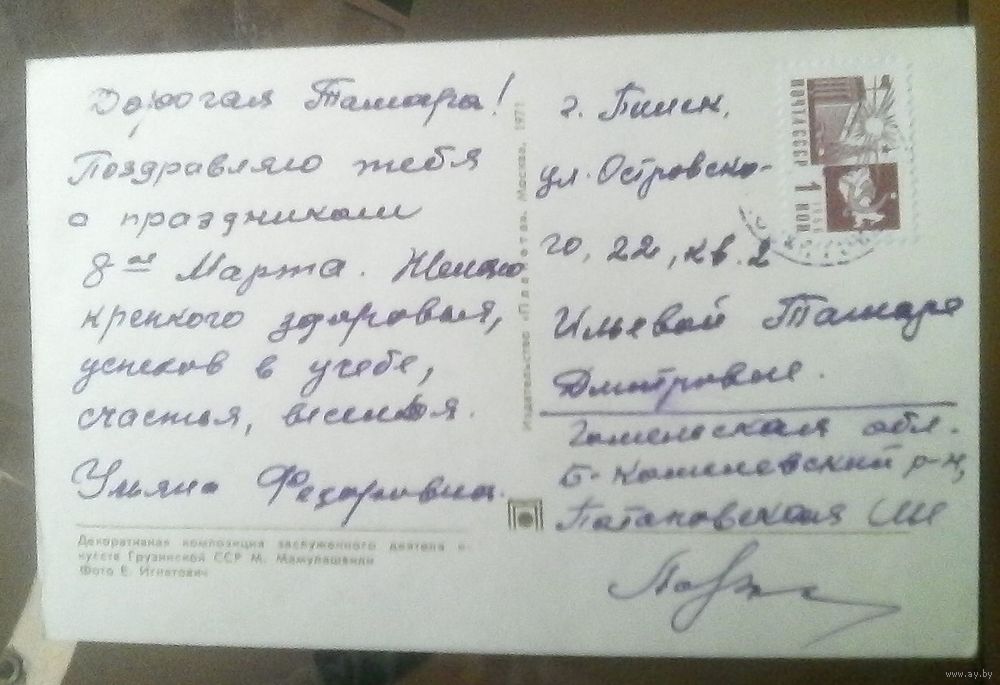 Дорогая Тамара!
Поздравляю тебя
с праздником
8-ое Марта. Желаю
крепкого здоровья,
успехов в учебе,
счастья, веселья.
Ульяна Федоровна.
Декоративная композиция заслуженного деятеля ис-
кусств Грузинской ССР М. Мамулашвили
Фото Е. Игнатович
Издательство «Планета». Москва, 1971
ПОЧТА СССР
1 КОП
1966
г. Пинск,
ул. Островско-
го, 22, кв. 2
Ильевой Тамаре
Дмитровне.
Гомельская обл.
Б-Кошелевский р-н,
Потаповская СШ
www.ay.by